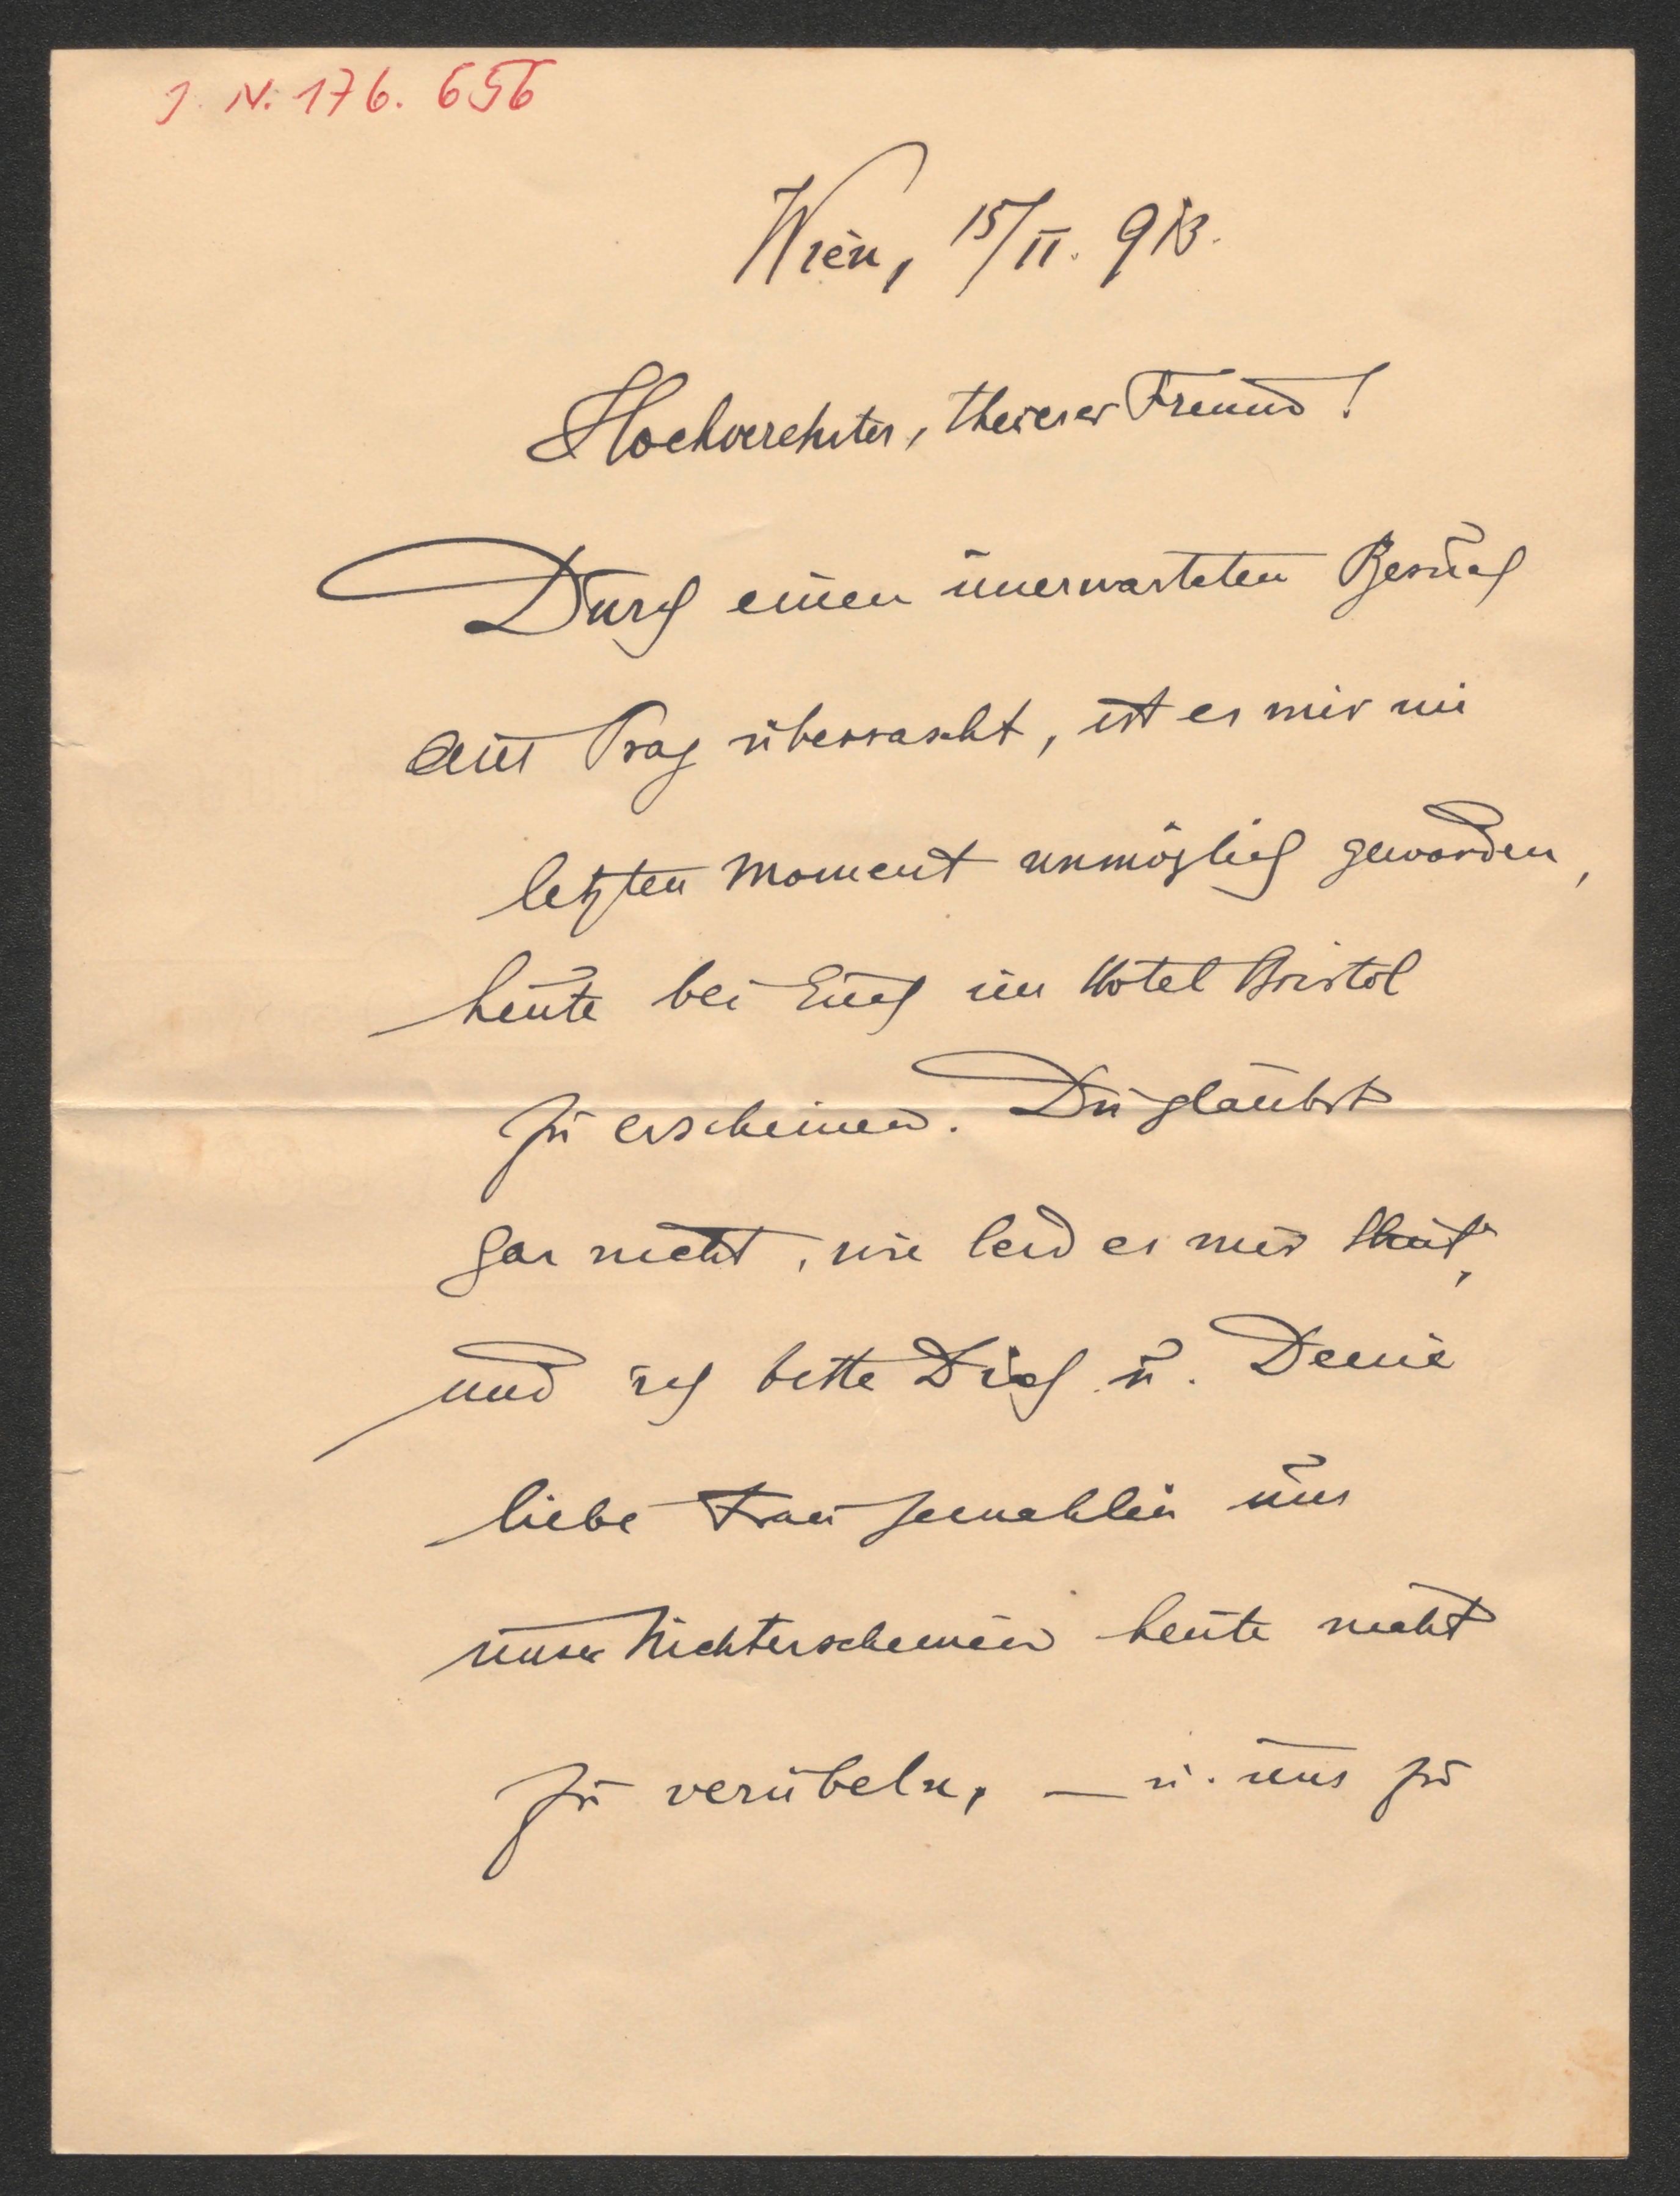 J. N. 176. 656
Wien, 15/II. 913.
Hochverehrter, theurer Freund!
Durch einen unerwarteten Besuch
aus Prag überrascht, ist es mir im
letzten Moment unmöglich geworden,
heute bei Euch im Hotel Bristol
zu erscheinen. Du glaubst
gar nicht, wie leid es mir thut,
und ich bitte Dich u. Deine
liebe Frau Gemahlin uns
unser Nichterscheinen heute nicht
zu verübeln, — u. uns zu